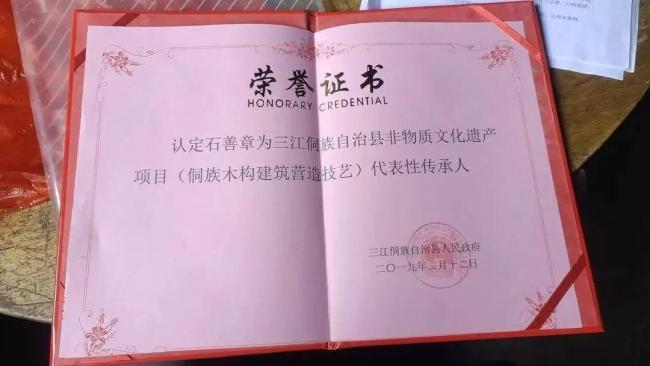 荣誉证书
HONORARY CREDENTIAL
认定石善章为三江侗族自治县非物质文化遗产
项目（侗族木构建筑营造技艺）代表性传承人
三江侗族自治县人民政府
二〇一九年三月十二日